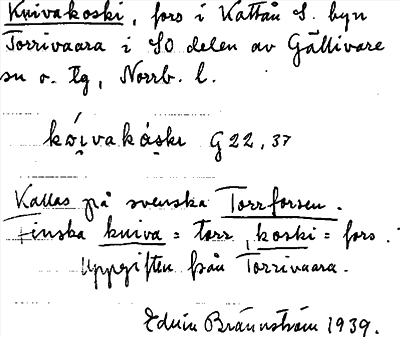 Kuivakoski, fors i Kattån S. byn
Torrivaara i SO delen av Gällivare
sn o. tg, Norrb. l.
kóivakáski G 22, 37
Kallas på svenska Torrforsen.
Finska kuiva = torr, koski = fors.
Uppgiften från Torrivaara.
Edvin Brännström 1939.